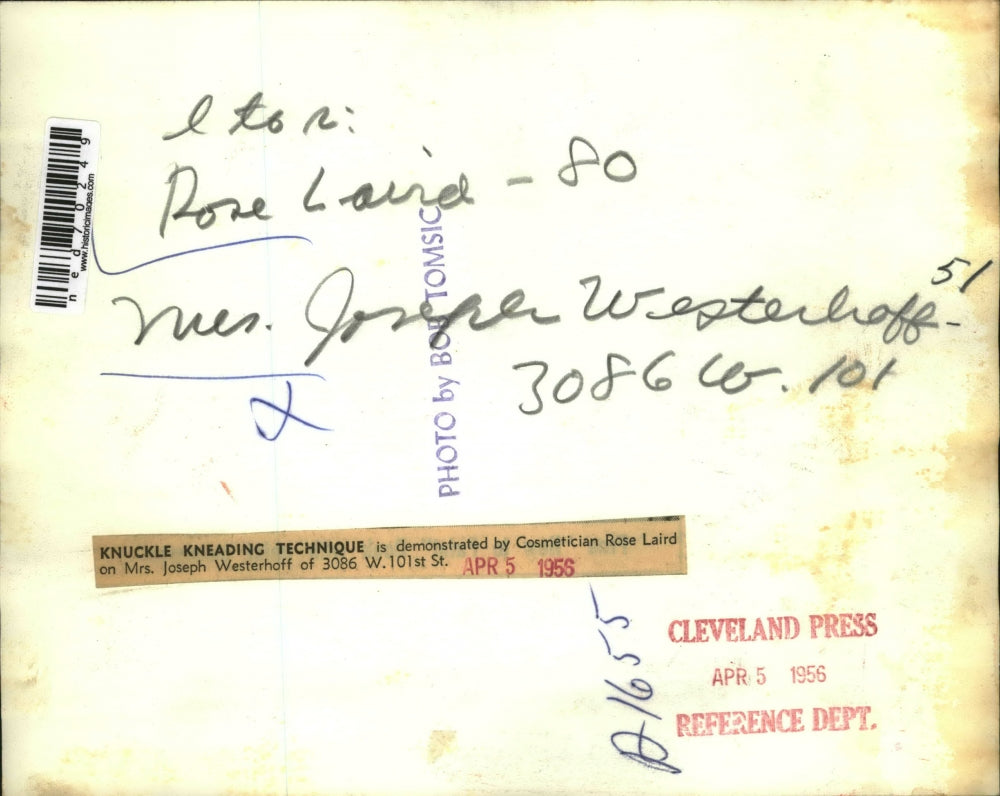 l to r:
Rose Laird - 80
Mrs. Joseph Westerhoff - 51
3086 W. 101
ned70249
www.historicimages.com
PHOTO by BOB TOMSIC
KNUCKLE KNEADING TECHNIQUE is demonstrated by Cosmetician Rose Laird
on Mrs. Joseph Westerhoff of 3086 W. 101st St. APR 5 1956
A-1655
CLEVELAND PRESS
APR 5 1956
REFERENCE DEPT.